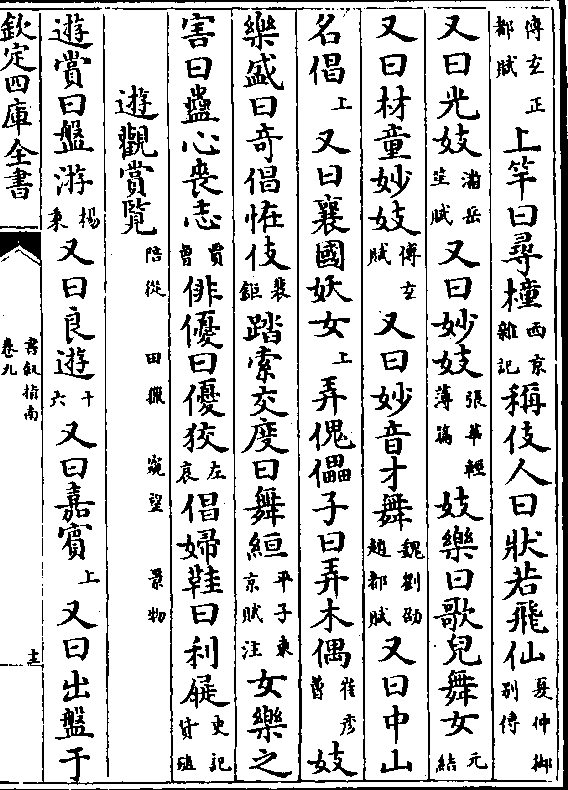 傅玄正都賦上竿曰尋橦西京雜記稱伎人曰狀若飛仙夏仲御別傳
又曰光妓潘岳笙賦又曰妙妓張華輕薄篇妓樂曰歌兒舞女元結
又曰材童妙妓傅玄賦又曰妙音才舞魏劉劭趙都賦又曰中山
名倡上又曰襄國妖女上弄傀儡子曰弄木偶崔彥曾妓
樂盛曰奇倡恠伎裴鉅踏索交度曰舞絙平子東京賦注女樂之
害曰蠱心喪志賈曾俳優曰優狡左哀倡婦鞋曰利屣史記貨殖
遊觀賞覽陪從 田獵 窺望 景物
遊賞曰盤游楊秉又曰良遊干六又曰嘉賓上又曰出盤于
欽定四庫全書
書叙指南
卷九
十三